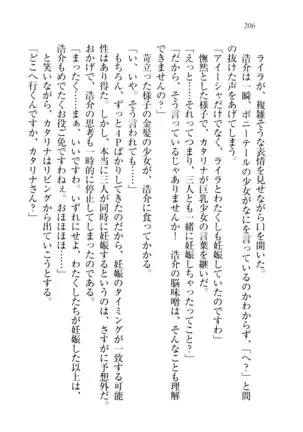 206
ライラが、複雑そうな表情を見せながら口を開いた。
浩介は一瞬、ポニーテールの少女がなにを言っているのかわからず、「へ?」と間
の抜けた声をあげてしまう。
「アイーシャだけでなく、ライラとわたくしも妊娠していたのですわ」
憮然とした様子で、カタリナが巨乳少女の言葉を継いだ。
「えっと……それってつまり、三人とも一緒に妊娠しちゃったってこと?」
「だから、そう言っているじゃありませんか! 浩介の脳味噌は、そんなことも理解
できませんの?」
苛立った様子の金髪の少女が、浩介に食ってかかる。
「い、いや。そう言われても……」
もちろん、ずっと4Pばかりしてきたのだから、妊娠のタイミングが一致する可能
性はあり得た。しかし、本当に三人が同時に妊娠するというのは、さすがに予想外だ。
おかげで、浩介の思考も一時的に停止してしまったのである。
「まったく……まぁ、いいですわ。いずれにせよ、わたくしたちが妊娠した以上は、
浩介もめでたくお役ご免ですわねぇ。おほほほ……」
と笑いながら、カタリナはリビングから出ていこうとする。
「どこへ行くんですか、カタリナさん?」